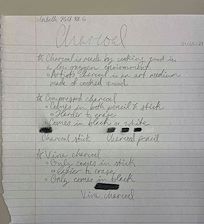 Charcoal
☆ Charcoal is made by cooking wood in
a low oxygen environment.
◦ Artists charcoal is an art medium
made of cooked wood
☆ Compressed charcoal
◦ Comes in both pencil & stick
◦ Harder to erase
◦ Comes in black or white
Charcoal stick Charcoal pencil
☆ Vine charcoal
◦ Only comes in stick
◦ easier to erase
◦ Only comes in black
Vine charcoal